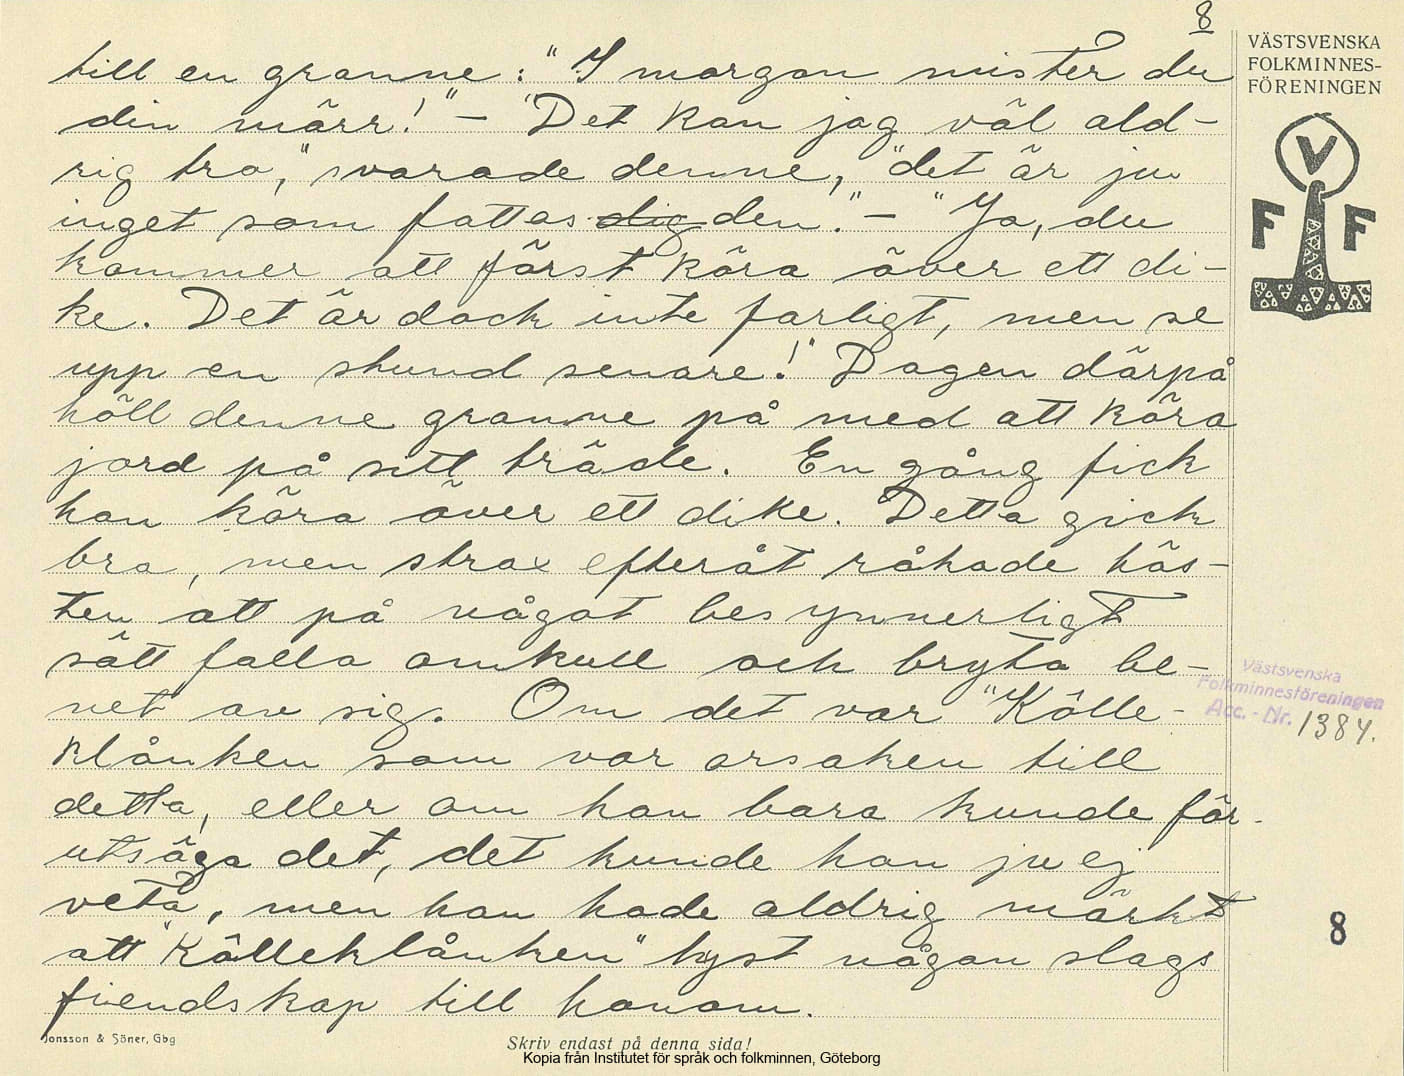 8
till en granne: "I morgon mister du
din märr!" - "Det kan jag väl ald-
rig tro," svarade denne, "det är ju
inget som fattas dig den." - "Jo, du
kommer att först köra över ett di-
ke. Det är dock inte farligt, men se
upp en stund senare!" Dagen därpå
höll denne granne på med att köra
jord på sitt träde. En gång fick
han köra över ett dike. Detta gick
bra, men strax efteråt råkade häs-
ten att på något besynnerligt
sätt falla omkull och bryta be-
net av sig. Om det var "Kölle-
klånken som var orsaken till
detta, eller om han bara kunde för-
utsäga det, det kunde han ju ej
veta, men han hade aldrig märkt
att "Källeklånken" hyst någon slags
fiendskap till honom.
VÄSTSVENSKA
FOLKMINNES-
FÖRENINGEN
V
F F
Västsvenska
Folkminnesföreningen
Acc. - Nr. 1384.
8
Jonsson & Söner, Gbg
Skriv endast på denna sida!
Kopia från Institutet för språk och folkminnen, Göteborg